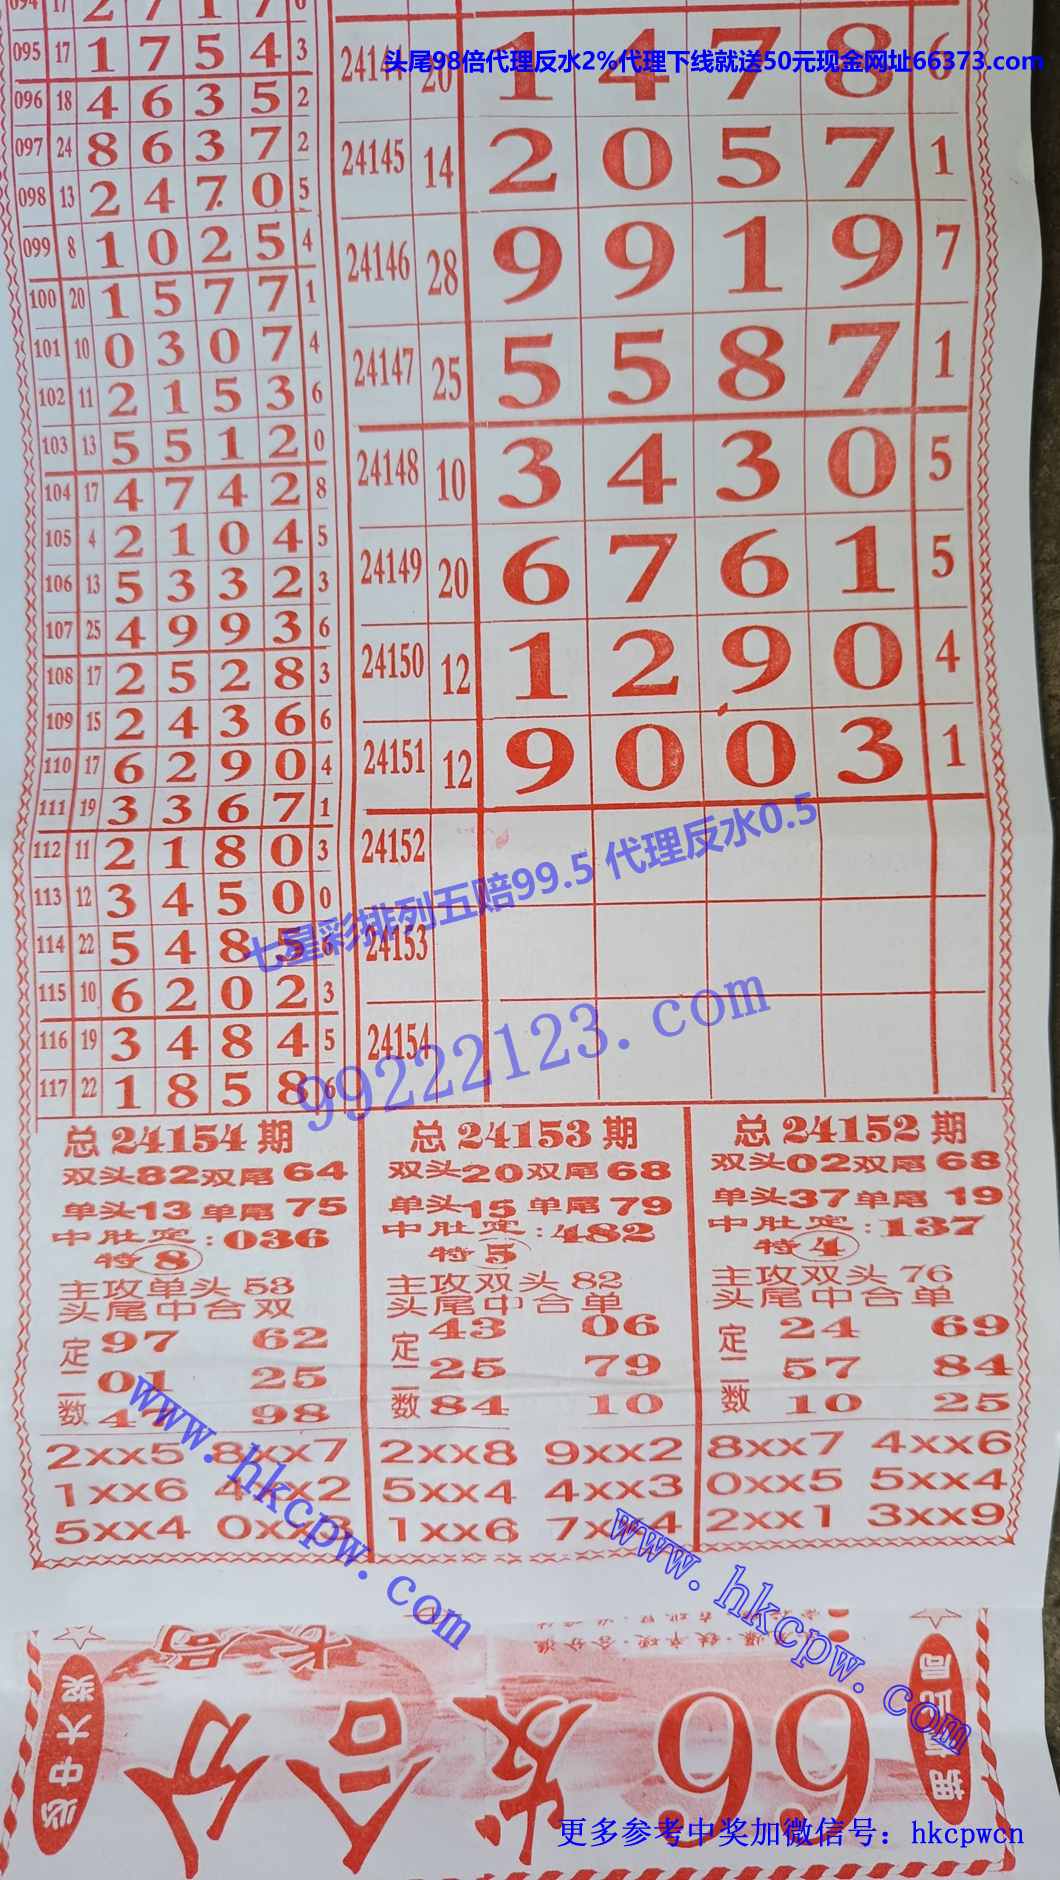 094 17 2 7 1 7 6
095 17 1 7 5 4 3
096 18 4 6 3 5 2
097 24 8 6 3 7 2
098 13 2 4 7 0 5
099 8 1 0 2 5 4
100 20 1 5 7 7 1
101 10 0 3 0 7 4
102 11 2 1 5 3 6
103 13 5 5 1 2 0
104 17 4 7 4 2 8
105 4 2 1 0 4 5
106 13 5 3 3 2 3
107 25 4 9 9 3 6
108 17 2 5 2 8 3
109 15 2 4 3 6 6
110 17 6 2 9 0 4
111 19 3 3 6 7 1
112 11 2 1 8 0 3
113 12 3 4 5 0 0
114 22 5 4 8 5 6
115 10 6 2 0 2 3
116 19 3 4 8 4 5
117 22 1 8 5 8 6
头尾98倍代理反水2%代理下线就送50元现金网址66373.com
24144 20 1 4 7 8 6
24145 14 2 0 5 7 1
24146 28 9 9 1 9 7
24147 25 5 5 8 7 1
24148 10 3 4 3 0 5
24149 20 6 7 6 1 5
24150 12 1 2 9 0 4
24151 12 9 0 0 3 1
24152
24153
24154
七星彩排列五赔99.5 代理反水0.5
99222123.com
总24154期
双头82双尾64
单头13单尾75
中肚定:036
特8
主攻单头53
头尾中合双
定二数
97 62
01 25
47 98
2xx5 8xx7
1xx6 4xx2
5xx4 0xx3
总24153期
双头20双尾68
单头15单尾79
中肚定:482
特5
主攻双头82
头尾中合单
定二数
43 06
25 79
84 10
2xx8 9xx2
5xx4 4xx3
1xx6 7xx4
总24152期
双头02双尾68
单头37单尾19
中肚定:137
特4
主攻双头76
头尾中合单
定二数
24 69
57 84
10 25
8xx7 4xx6
0xx5 5xx4
2xx1 3xx9
www.hkcpw.com
www.hkcpw.com
必中大奖
分合发
66
更多参考中奖加微信号：hkcpwcn